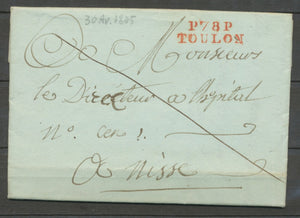 30 av. 1805
P78P
TOULON
A Monsieur
le Directeur a hopital
n.° cen 1.
A nisse